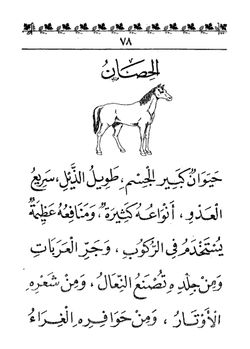 ٧٨
الحِصَانُ
حَيَوَانٌ كَبِيرُ الْجِسْمِ، طَوِيلُ الذَّيْلِ، سَرِيعُ
الْعَدْوِ، أَنْوَاعُهُ كَثِيرَةٌ، وَمَنَافِعُهُ عَظِيمَةٌ
يُسْتَخْدَمُ فِي الرُّكُوبِ، وَجَرِّ الْعَرَبَاتِ
وَمِنْ جِلْدِهِ تُصْنَعُ النِّعَالُ، وَمِنْ شَعْرِهِ
الْأَوْتَارُ، وَمِنْ حَوَافِرِهِ الْغِرَاءُ